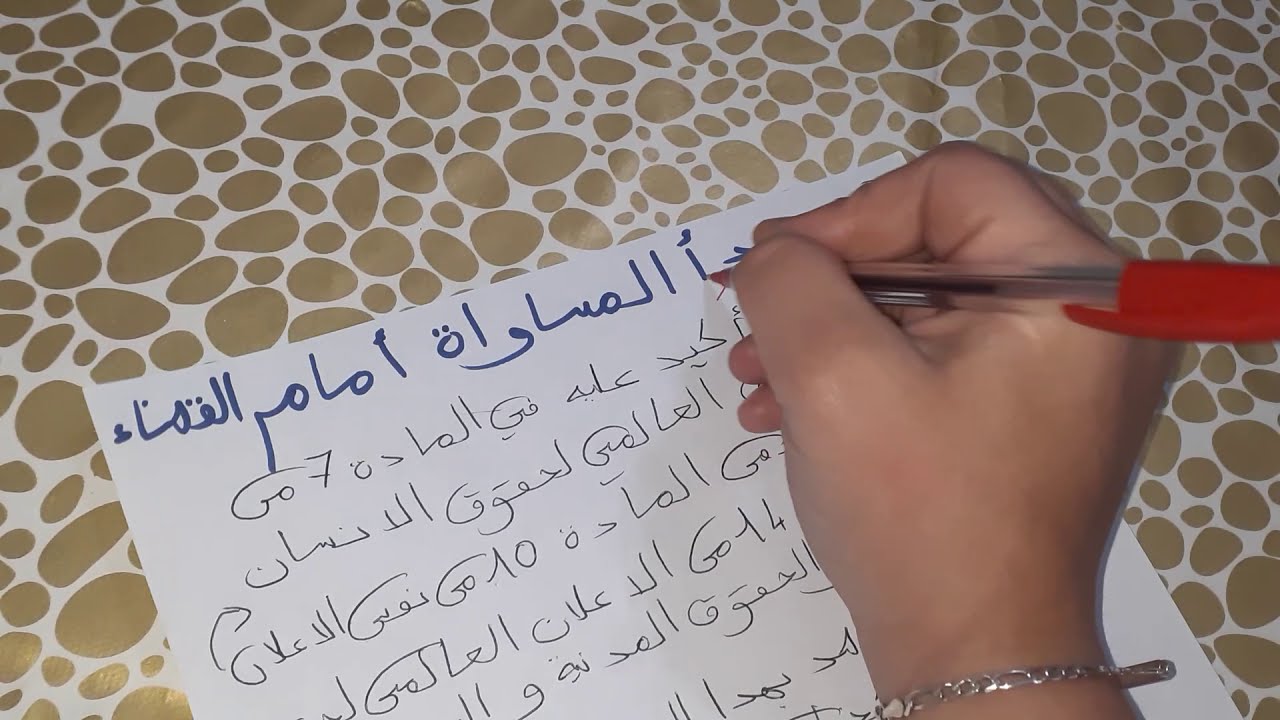 المساواة أمام القضاء
أكيد عليه في المادة 7 من
العالمي لحقوق الانسان
المادة 10 من نفس الاعلان
14 من الاعلان العالمي
الحقوق المدنية و
بهدا